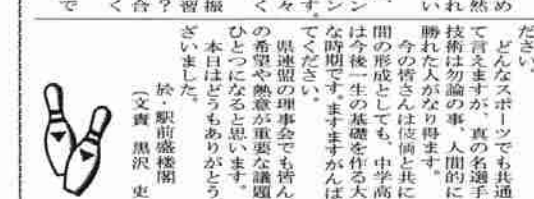 ださい。
どんなスポーツでも共通
て言えますが、真の名選手
技術は勿論の事、人間的に
勝れた人がなり得ます。
今の皆さんは技術と共に
間の形成としても、中学高
は今後一生の基礎を作る大
な時期です。ますますがんば
てください。
県連盟の理事会でも皆ん
の希望や熱意が重要な議題
ひとつになると思います。
本日はどうもありがとう
ざいました。
於・駅前盛楼閣
(文責 黒沢 吏